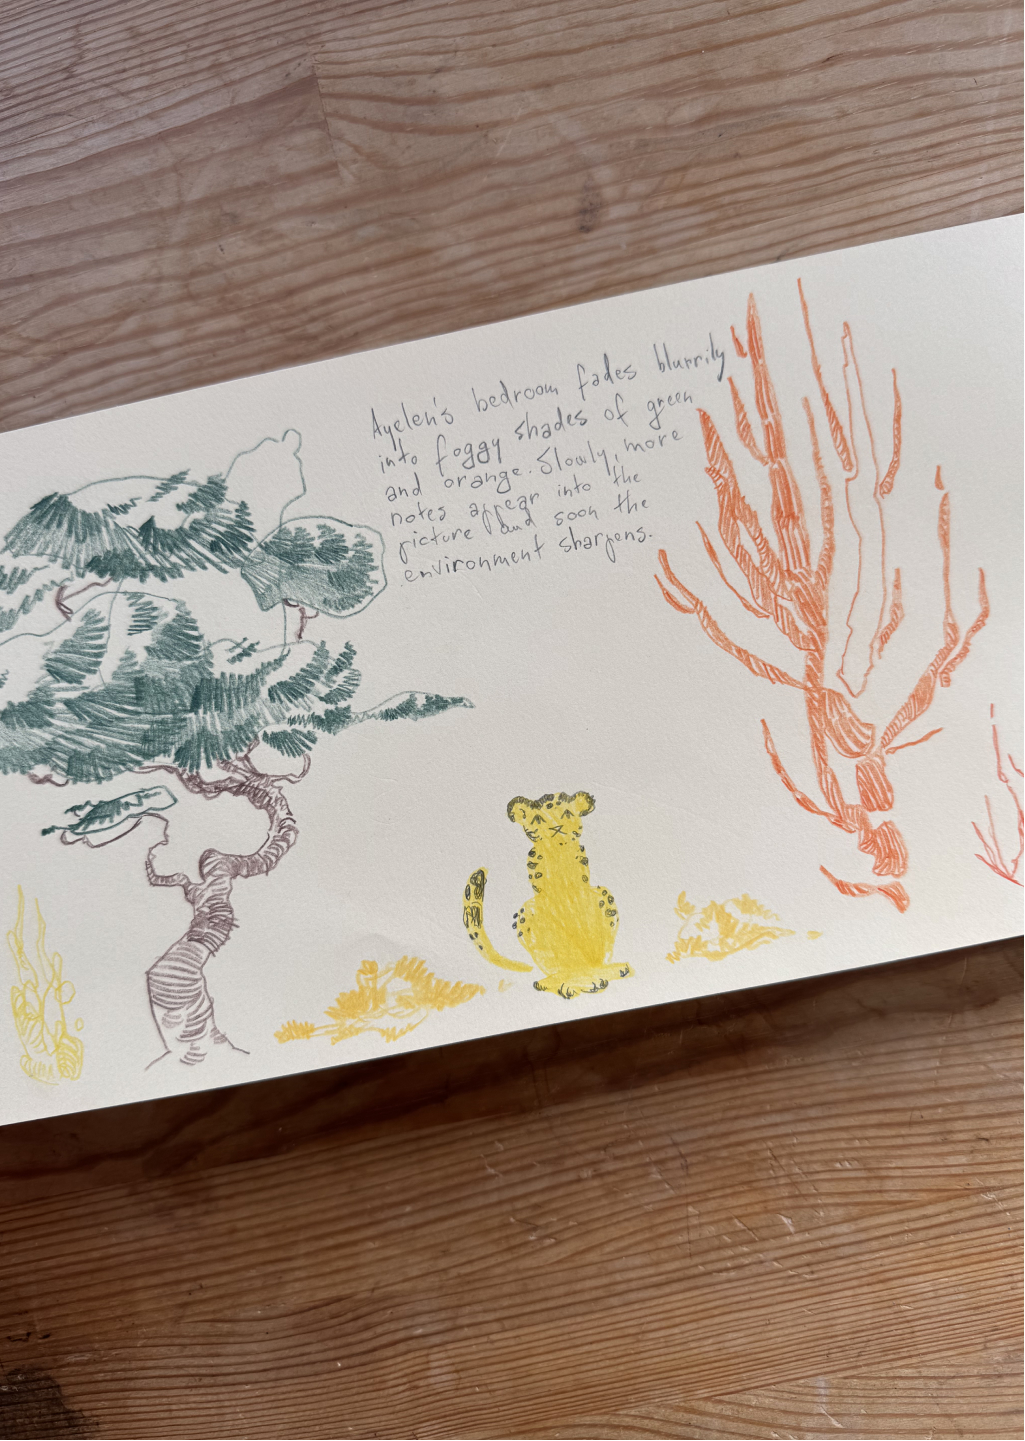 Ayelen's bedroom fades blurrily
into foggy shades of green
and orange. Slowly, more
notes appear into the
picture and soon the
environment sharpens.